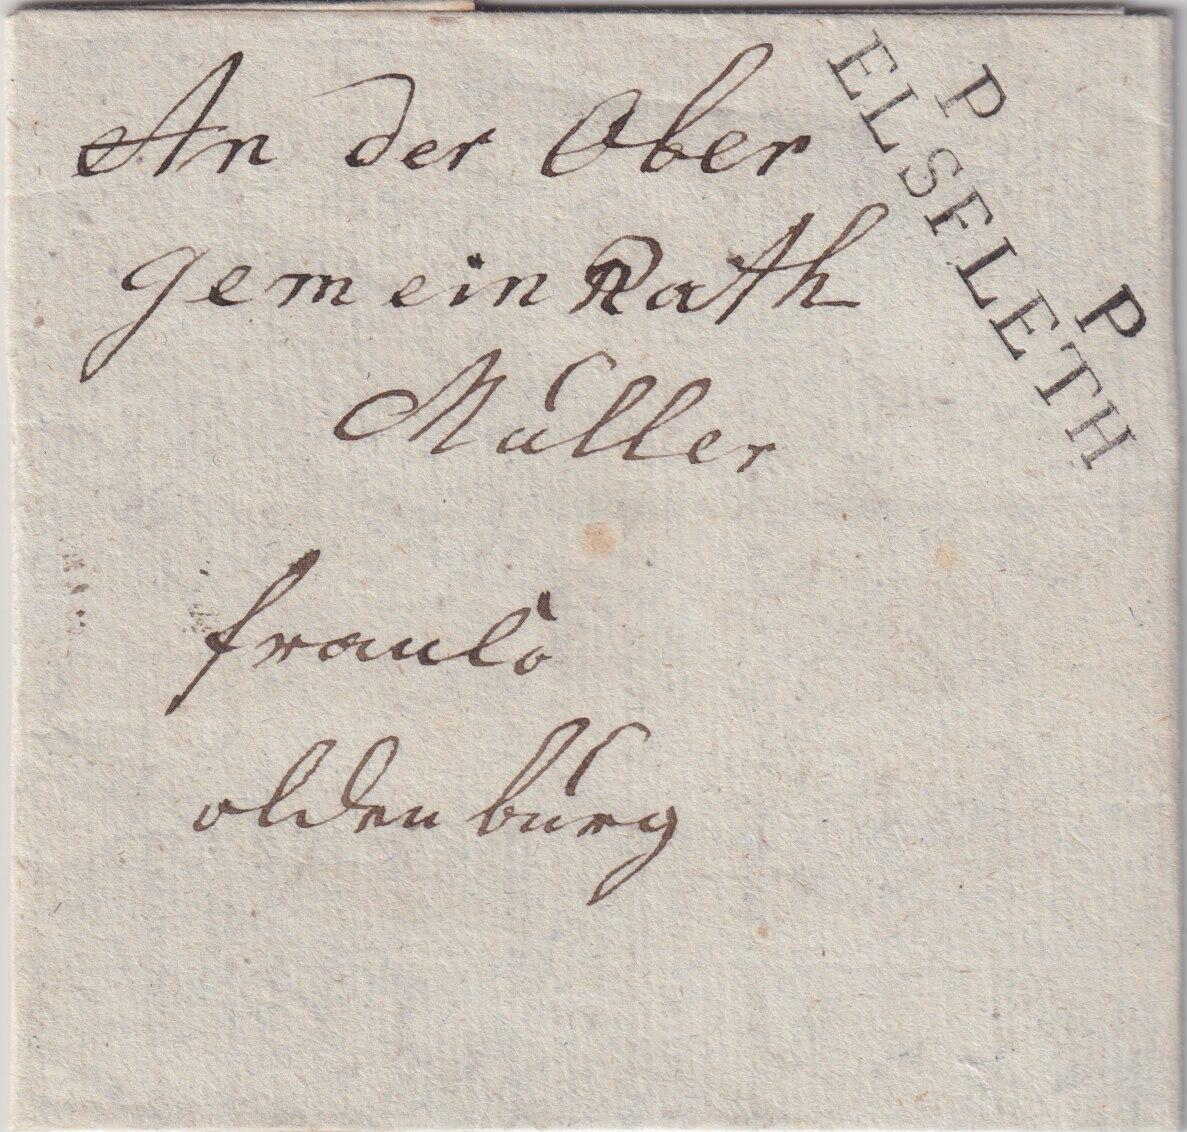 P P
ELSFLETH
An der Ober
gemein Rath
Müller
frauco
oldenburg